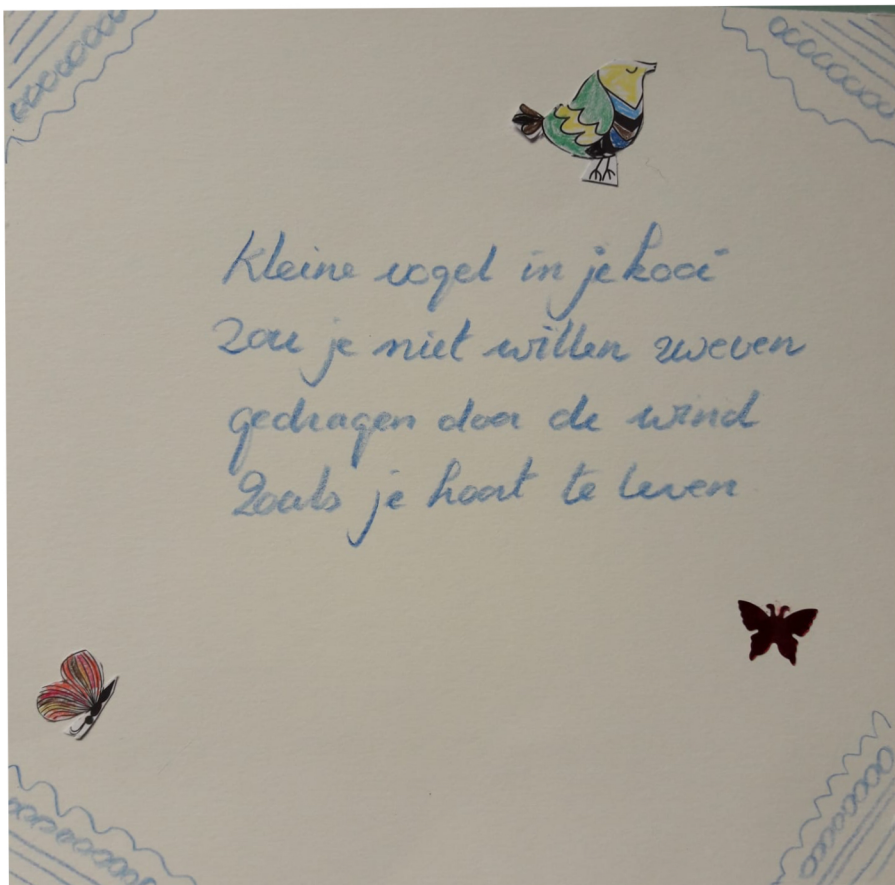 Kleine vogel in je kooi
Zou je niet willen zweven
gedragen door de wind
Zoals je hoort te leven